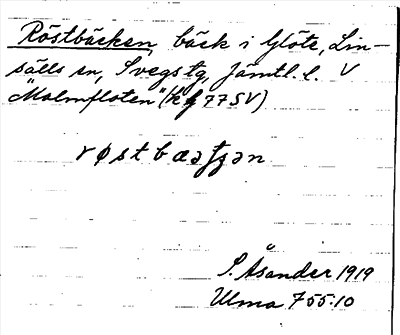 Röstbäcken, bäck i Glöte, Lin-
sälls sn, Svegs tg, Jämtl. l. V
"Malmfloten" (kbl 77 SV)
røstbæatʃən
S. Åsander 1919
Ulma 755:10